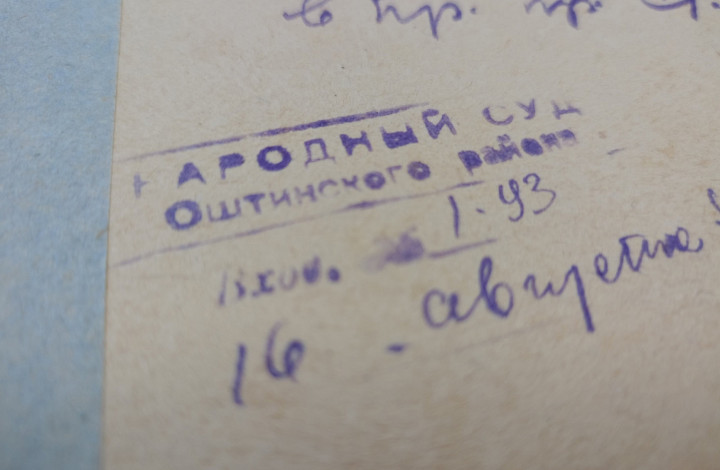 в пр. пр.
НАРОДНЫЙ СУД
Оштинского района
Вход. № 1-93
16 - августа